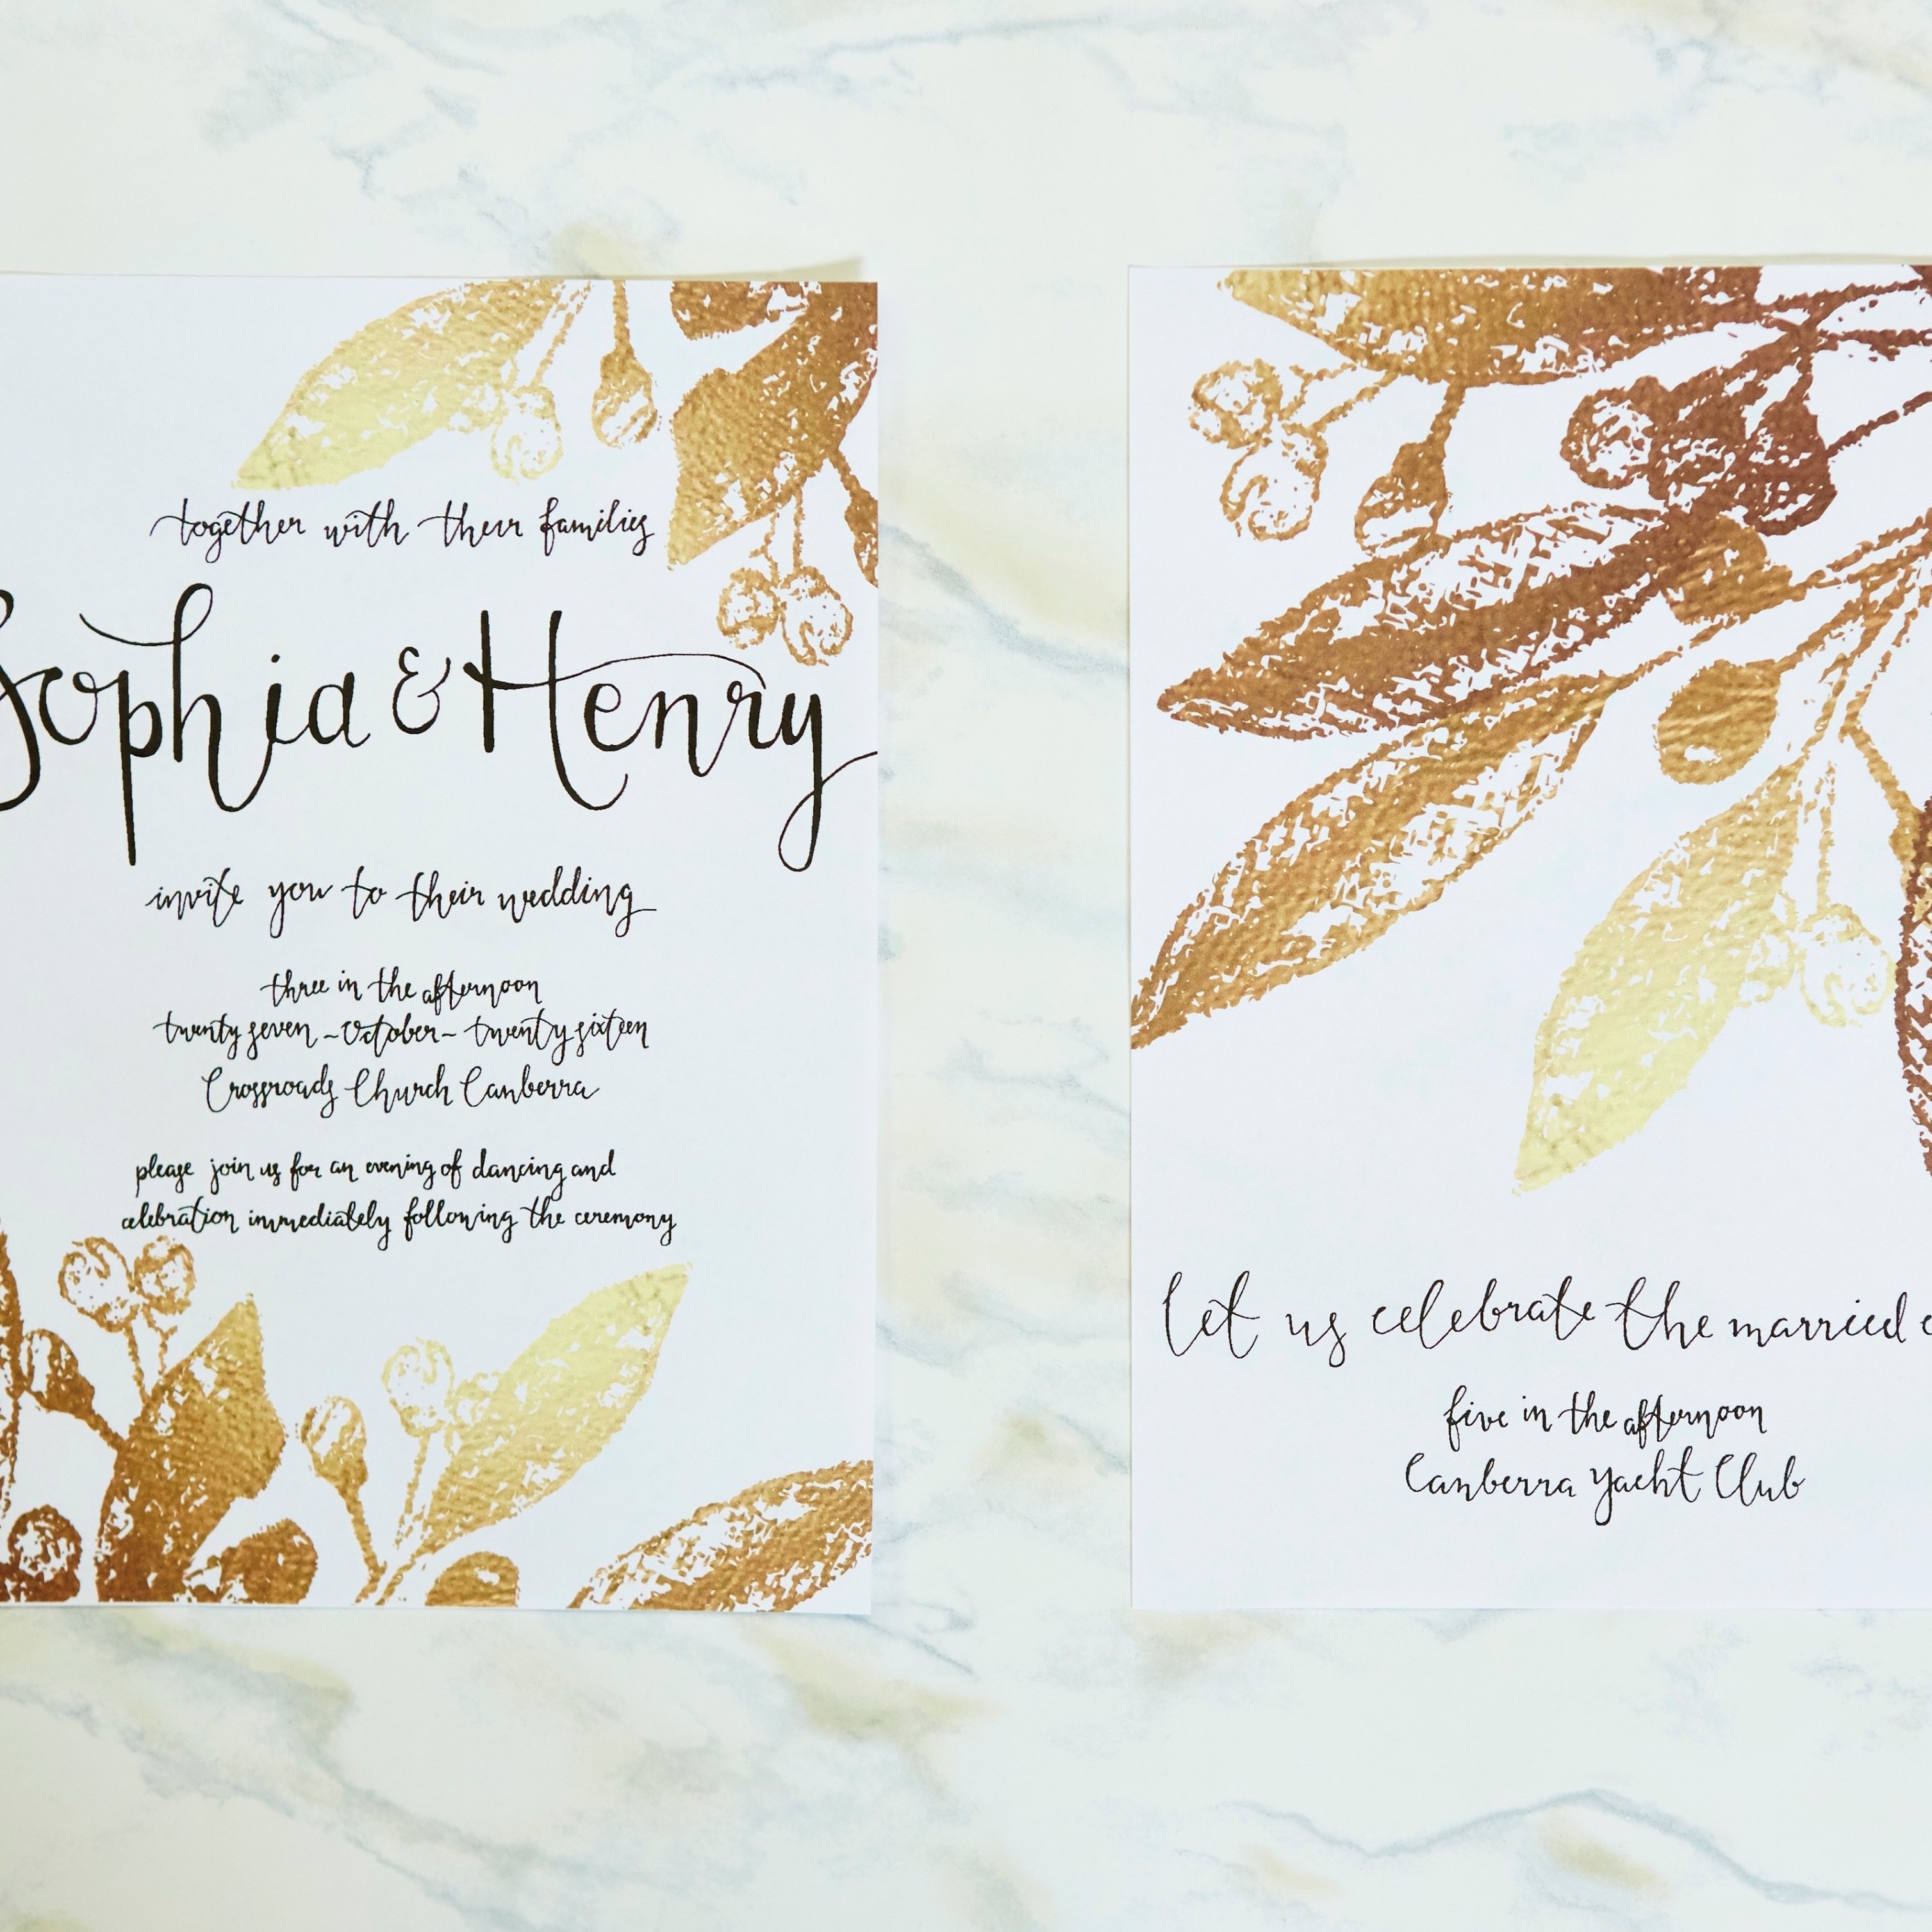 together with their families
Sophia & Henry
invite you to their wedding
three in the afternoon
twenty seven ~October~ twenty sixteen
Crossroads Church Canberra
please join us for an evening of dancing and
celebration immediately following the ceremony
let us celebrate the married
five in the afternoon
Canberra Yacht Club